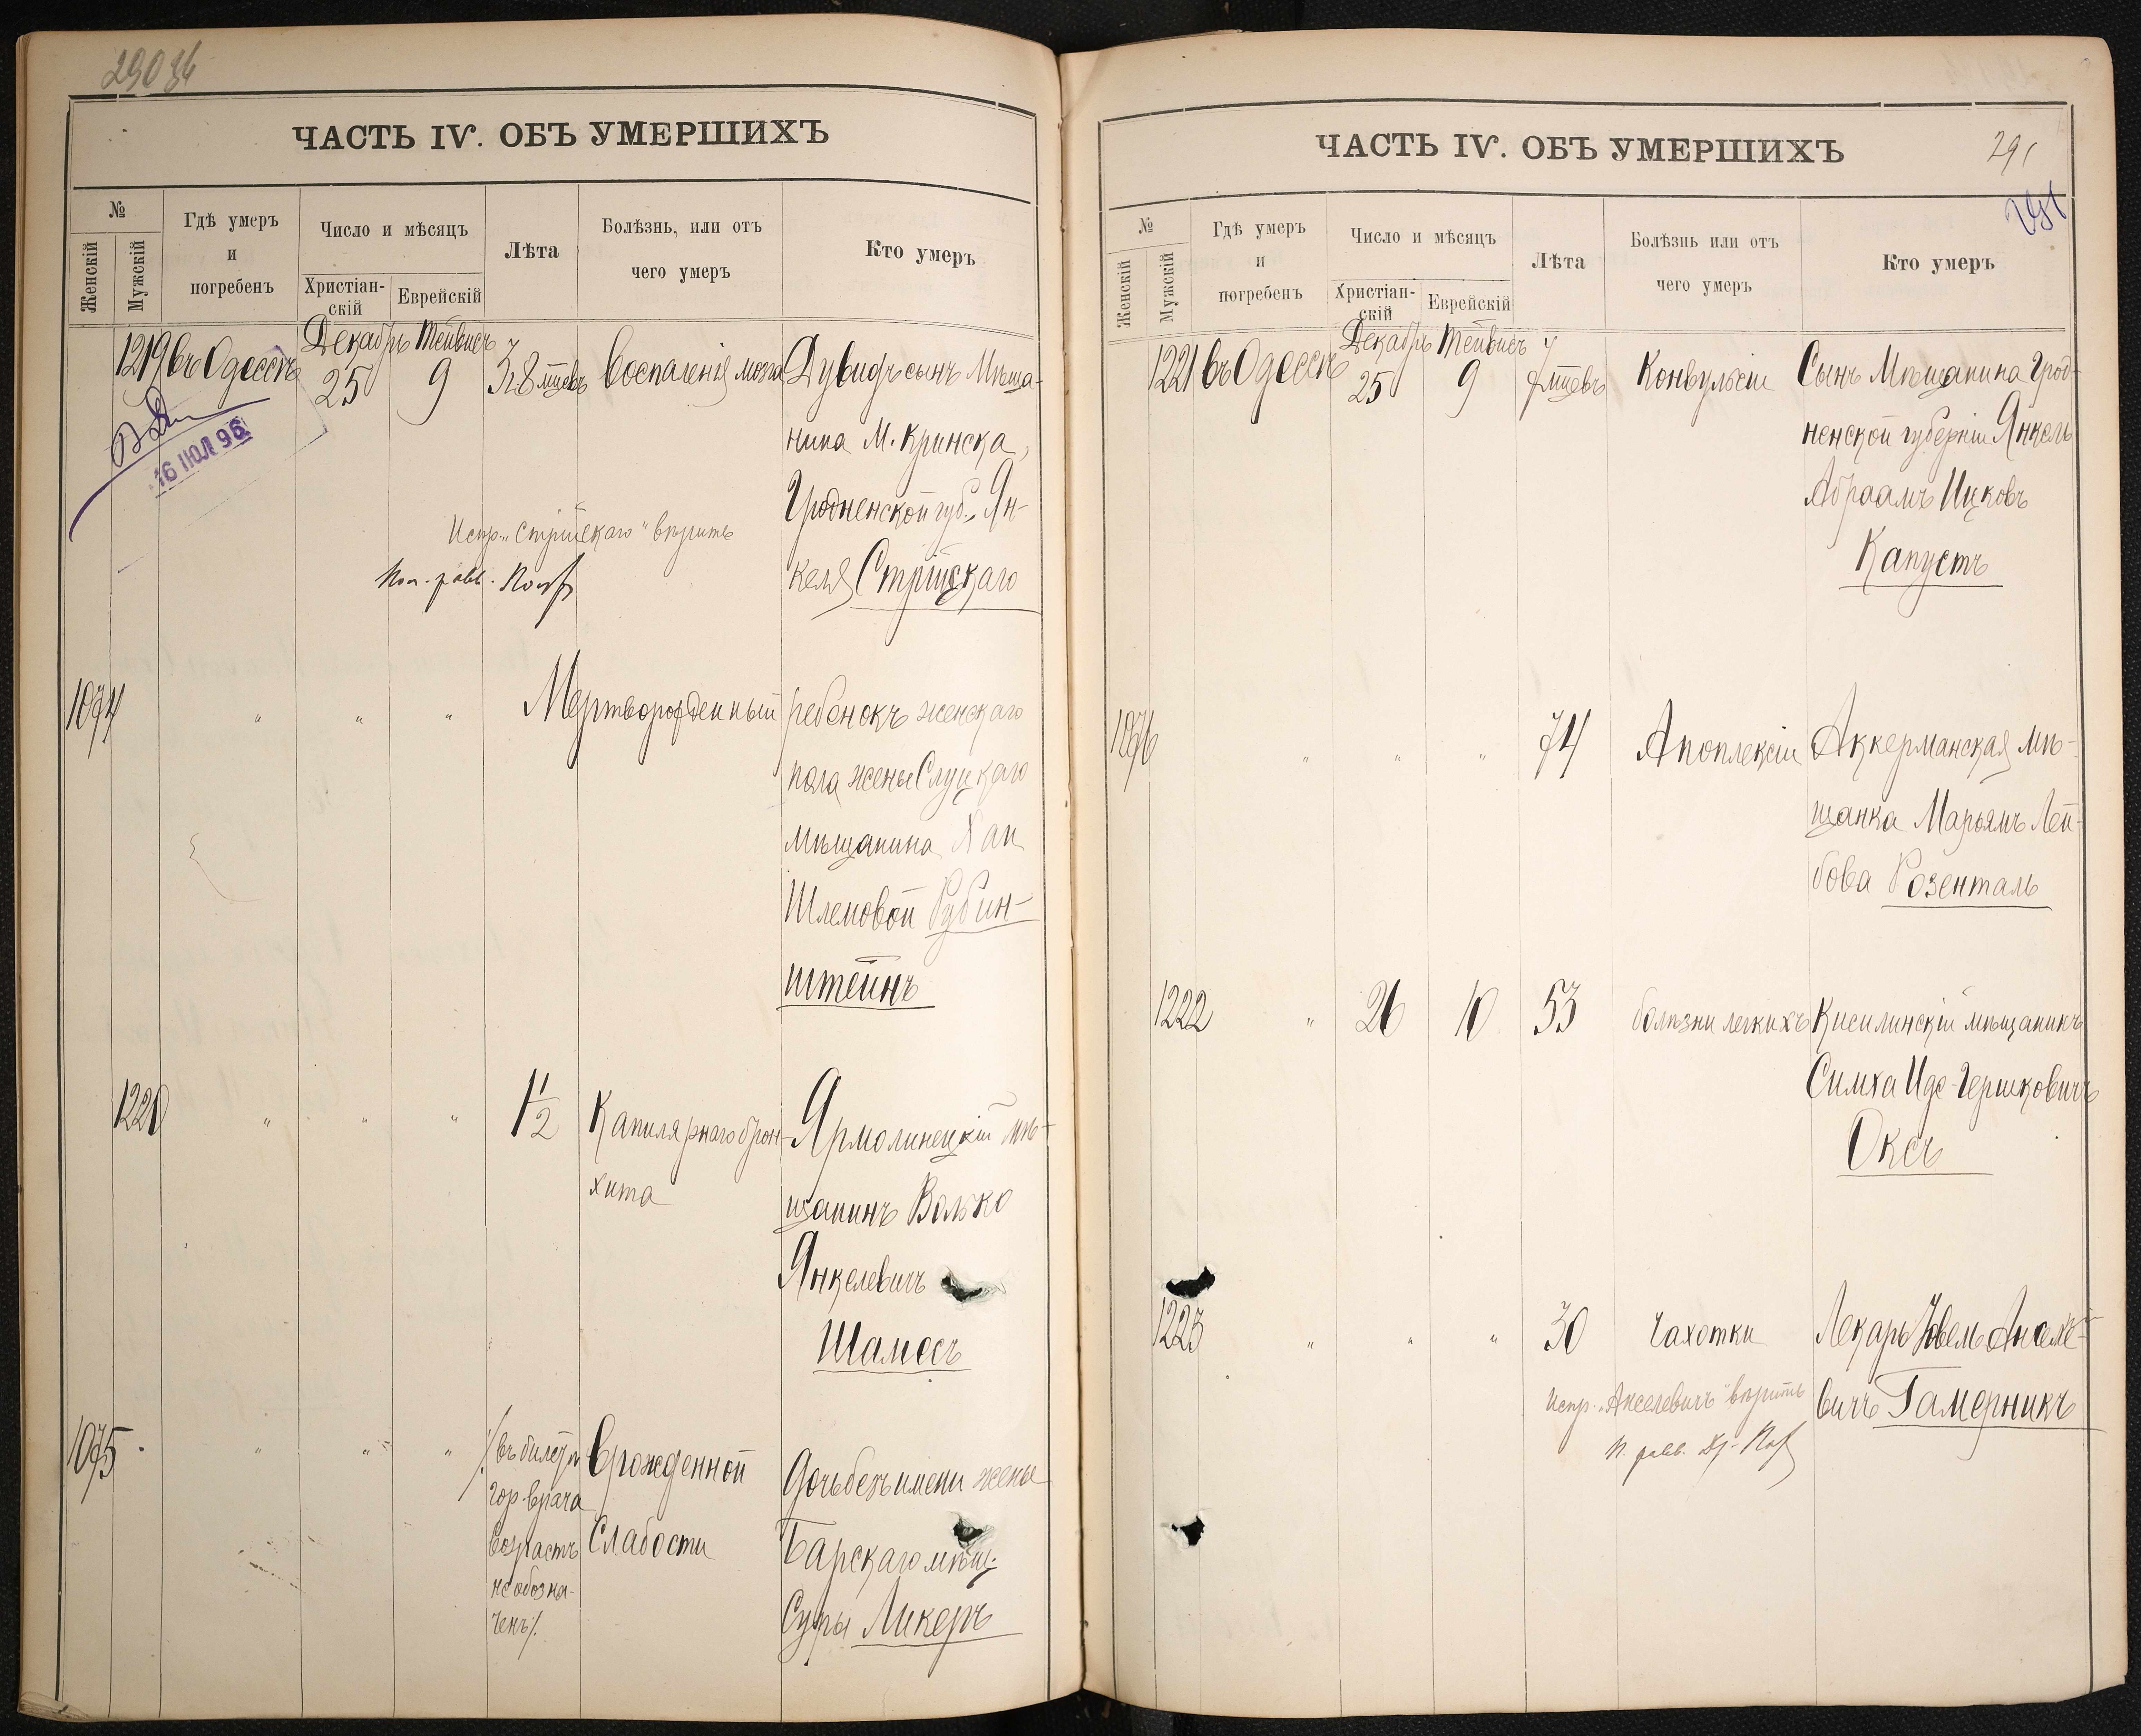 290
ЧАСТЬ IV. ОБЪ УМЕРШИХЪ
№
Женскій
Мужскій
Гдѣ умеръ
и
погребенъ
Число и мѣсяцъ
Христіан-
скій
Еврейскій
Лѣта
Болѣзнь, или отъ
чего умеръ
Кто умеръ
Декабрь Тейвисъ
1219 въ Одессѣ 25 9 3 г. 8 мцевъ Воспаленія мозга Дувидъ сынъ Мѣща-
нина М. Кринска,
Гродненской губ., Ян-
келя Стрійскаго
16 ІЮЛ 96
Испр. „Стрійскаго" вѣрить
Пом. равв.
1074 " " " Мертворожденный ребенокъ женскаго
пола жены Слуцкаго
мѣщанина Хаи
Шлемовой Рубин-
штейнъ
1220 " " " 1½ Капилярнаго брон-
хита
Ярмолинецкій мѣ-
щанинъ Волько
Янкелевичъ
Шамесъ
1075 " " " /:въ билетѣ
гор. врача
возрастъ
не обозна-
ченъ/.
Врожденной
Слабости
Дочь безъ имени жены
Барскаго мѣщ.
Суры Ликеръ
ЧАСТЬ IV. ОБЪ УМЕРШИХЪ
291
291
№
Женскій
Мужскій
Гдѣ умеръ
и
погребенъ
Число и мѣсяцъ
Христіан-
скій
Еврейскій
Лѣта
Болѣзнь или отъ
чего умеръ
Кто умеръ
Декабрь Тейвисъ
1221 въ Одессѣ 25 9 мцевъ Конвульсіи Сынъ Мѣщанина Грод-
ненской губерніи Янкель
Абраамъ Ицковъ
Капустъ
1076 " " " 74 Апоплексіи Аккерманская мѣ-
щанка Марьямъ Лей-
бова Розенталь
1222 " 26 10 53 болѣзни легкихъ Кисилинскій мѣщанинъ
Симха Идс-Гершковичъ
Оксъ
1223 " " " 30 Чахотки Лекарь Іовель Анселе-
вичъ Гамерникъ
Испр. „Анселевичъ" вѣрить
П. равв.